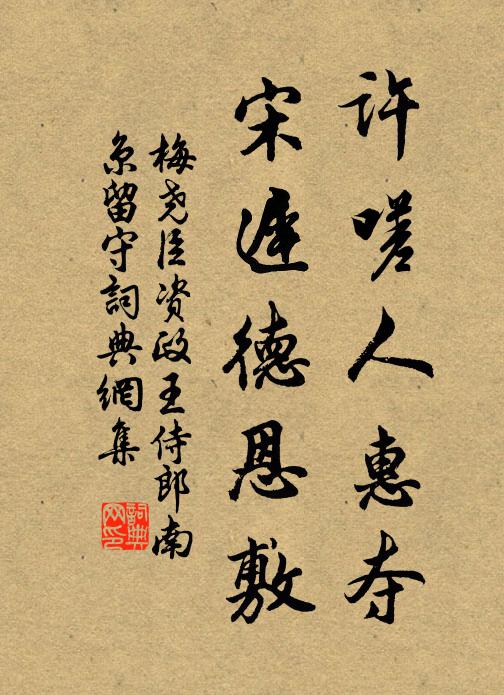 许嗟人惠夺
宋遲德恩敷
梅尧臣资政王侍郎南
京留守詞典網集
詞典网印